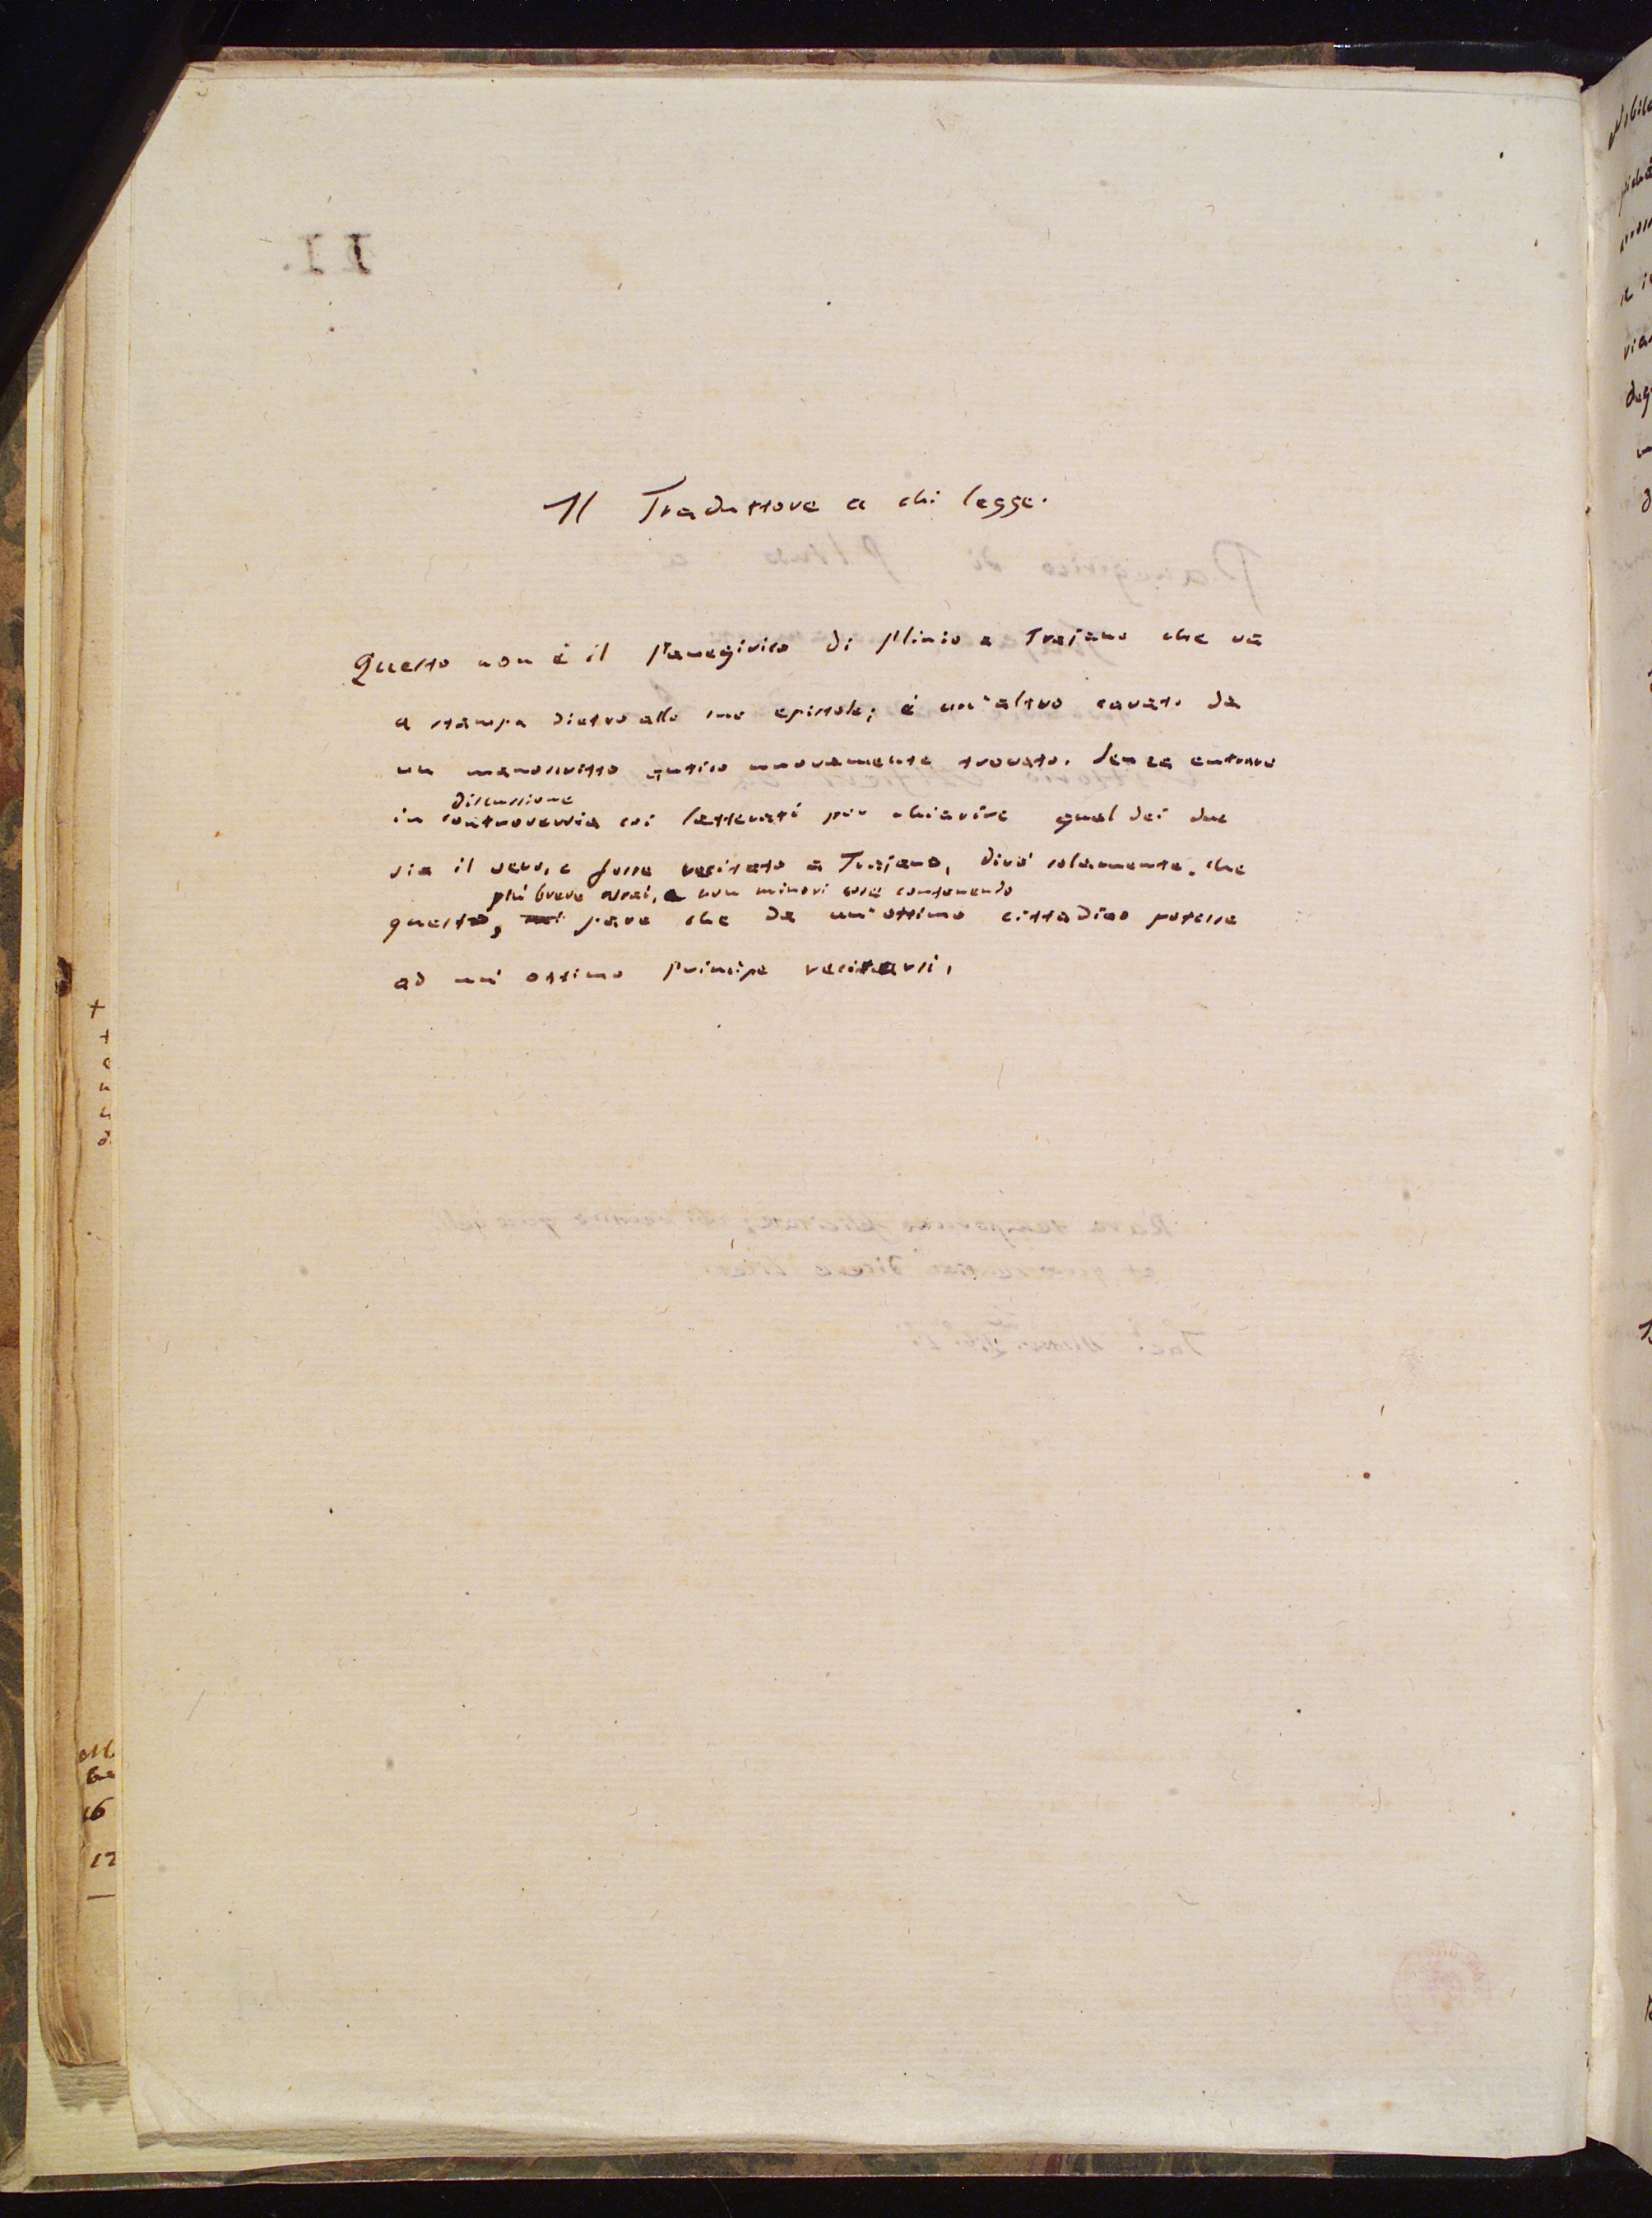 Il Traduttore a chi legge.
Questo non é il Panegirico di Plinio a Trajano che và
a stampa dietro alle sue epistole; é un'altro cavato da
un manoscritto antico nuovamente trovato. Senza entrare
discussione
in controversia coi letterati per chiarire qual dei due
sia il vero, e fosse recitato a Trajano, dirò solamente, che
più breve assai, e non minori cose contenendo
questo, mi pare che da un'ottimo cittadino potesse
ad un' ottimo Principe recitarsi.